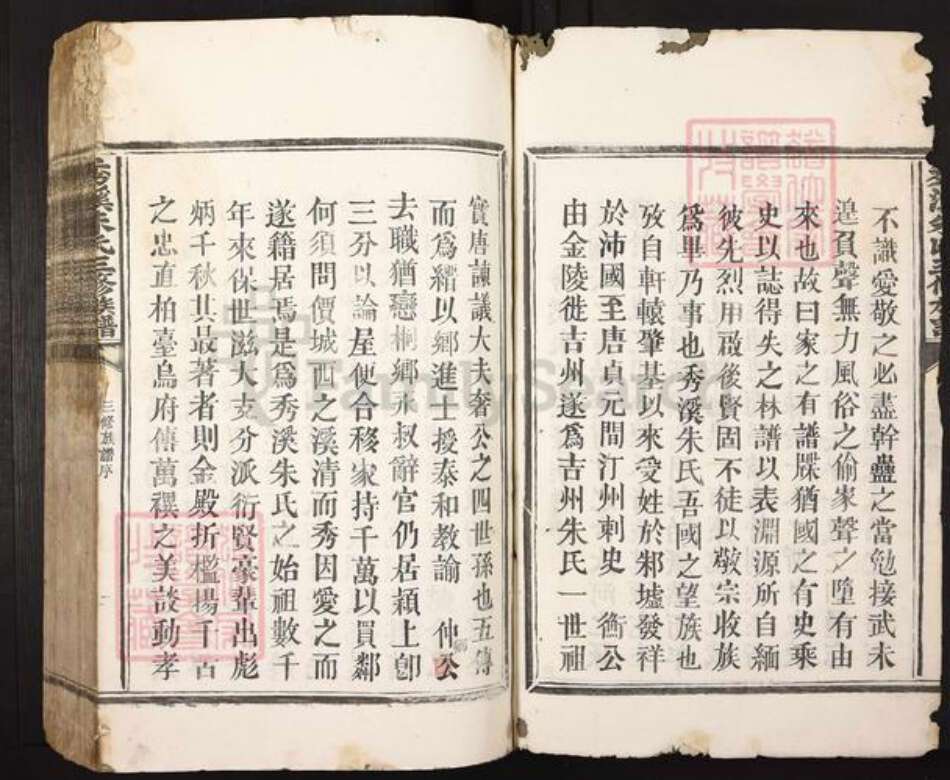 不識愛敬之必盡幹蠱之當勉接武未
遑負聲無力風俗之偷家聲之墮有由
來也故曰家之有譜牒猶國之有史乘
史以誌得失之林譜以表淵源所自緬
彼先烈用啟後賢固不徒以敬宗收族
為畢乃事也秀溪朱氏吾國之望族也
攷自軒轅肇基以來受姓於邾墟發祥
於沛國至唐貞元間汀州刺史 衡公
由金陵徙吉州遂為吉州朱氏一世祖
實唐諫議大夫奢公之四世孫也五傳
而為縉以鄉進士授泰和教諭 仲公
去職猶戀桐鄉永叔辭官仍居潁上卽
三分以論屋便合移家持千萬以買鄰
何須問價城西之溪清而秀因愛之而
遂籍居焉是為秀溪朱氏之始祖數千
年來保世滋大支分派衍賢豪輩出彪
炳千秋其最著者則金殿折檻揚千古
之忠直柏臺烏府傳萬禩之美談動孝
秀溪朱氏三修族譜
三修族譜序
FamilySearch